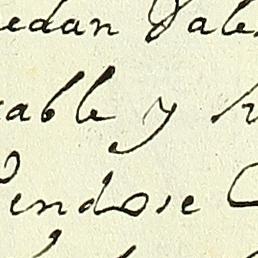 edan Vale
able y
endose